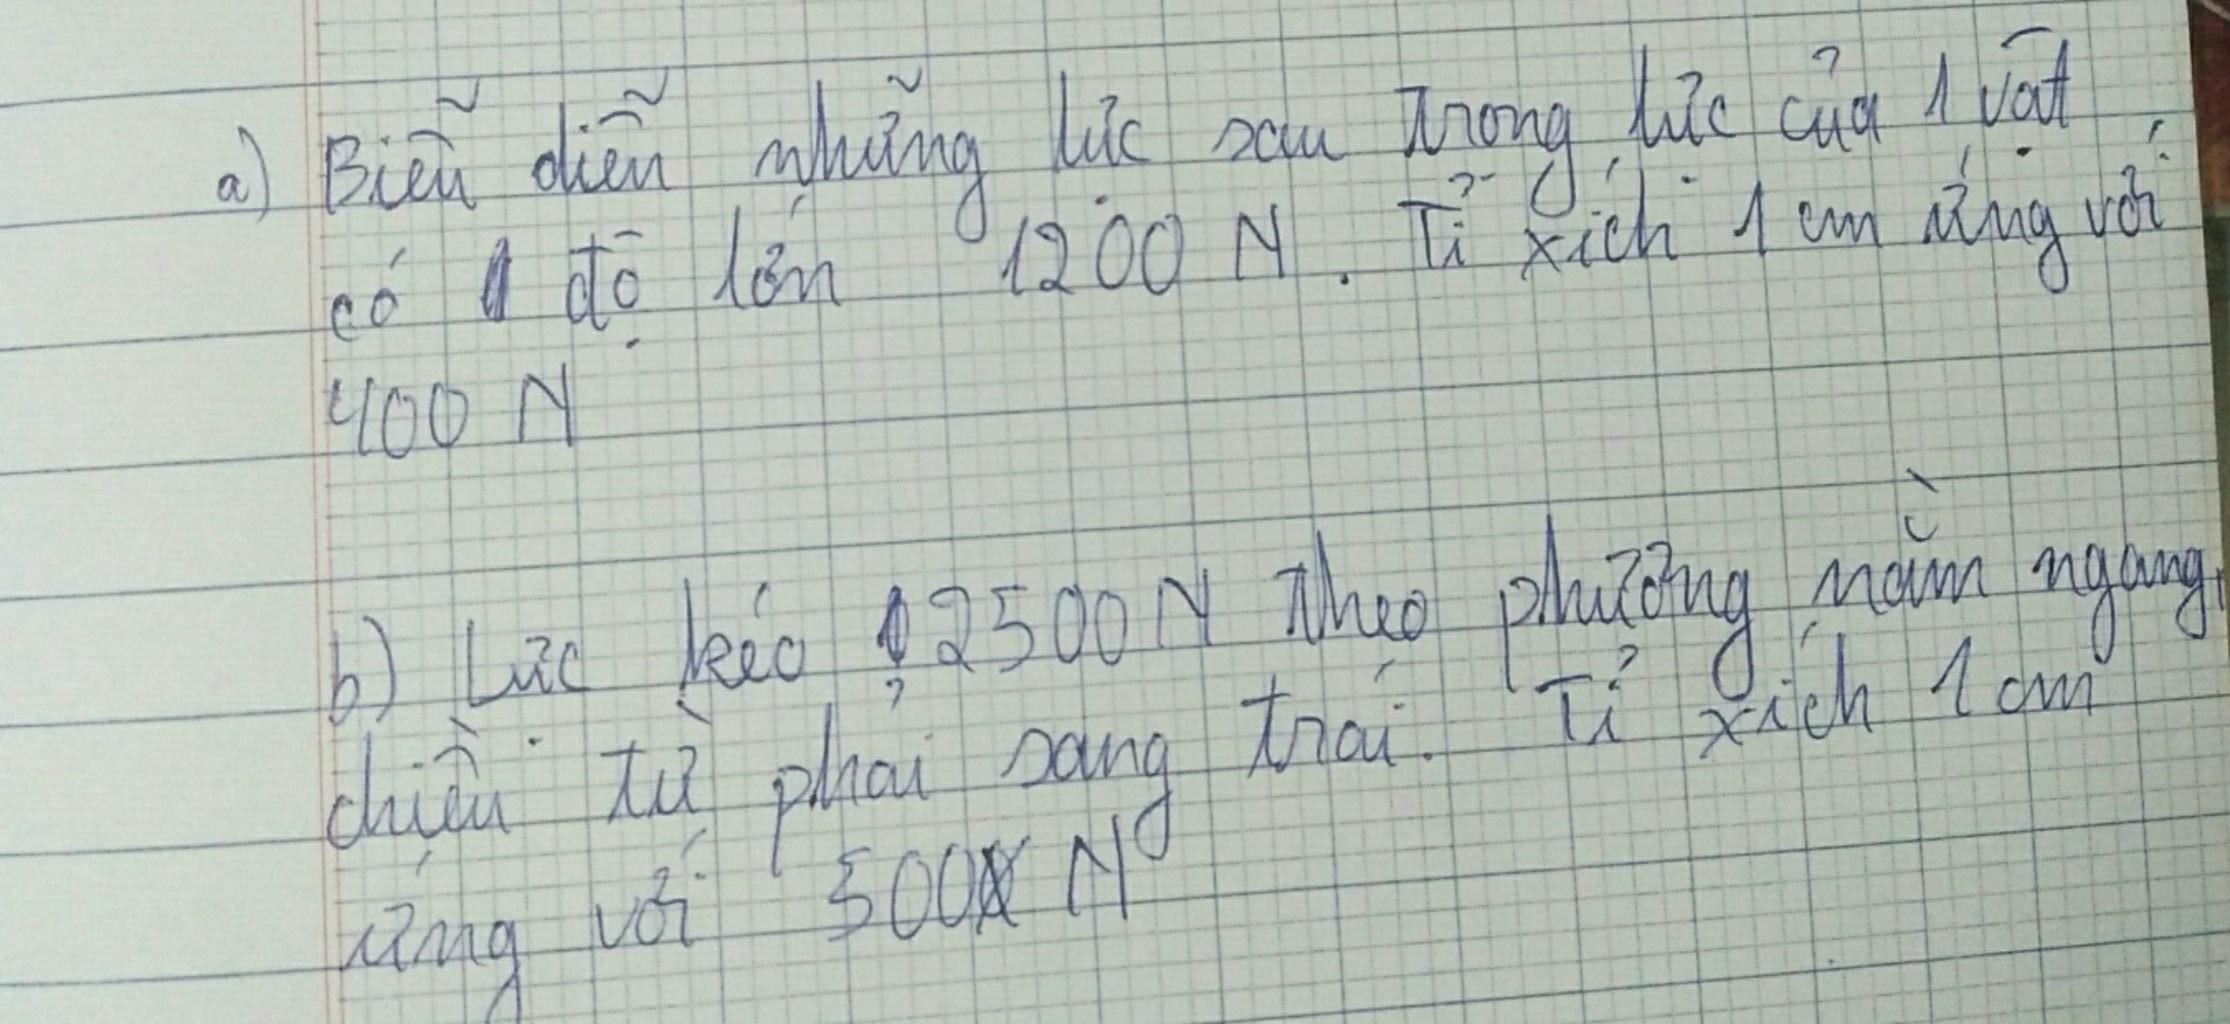 a) Biểu diễn những lực sau trọng lực của 1 vật
có độ lớn 1200 N. Tỉ xích 1 cm ứng với
400 N
b) Lực kéo 2500 N theo phương nằm ngang,
chiều từ phải sang trái. Tỉ xích 1 cm
ứng với 500 N